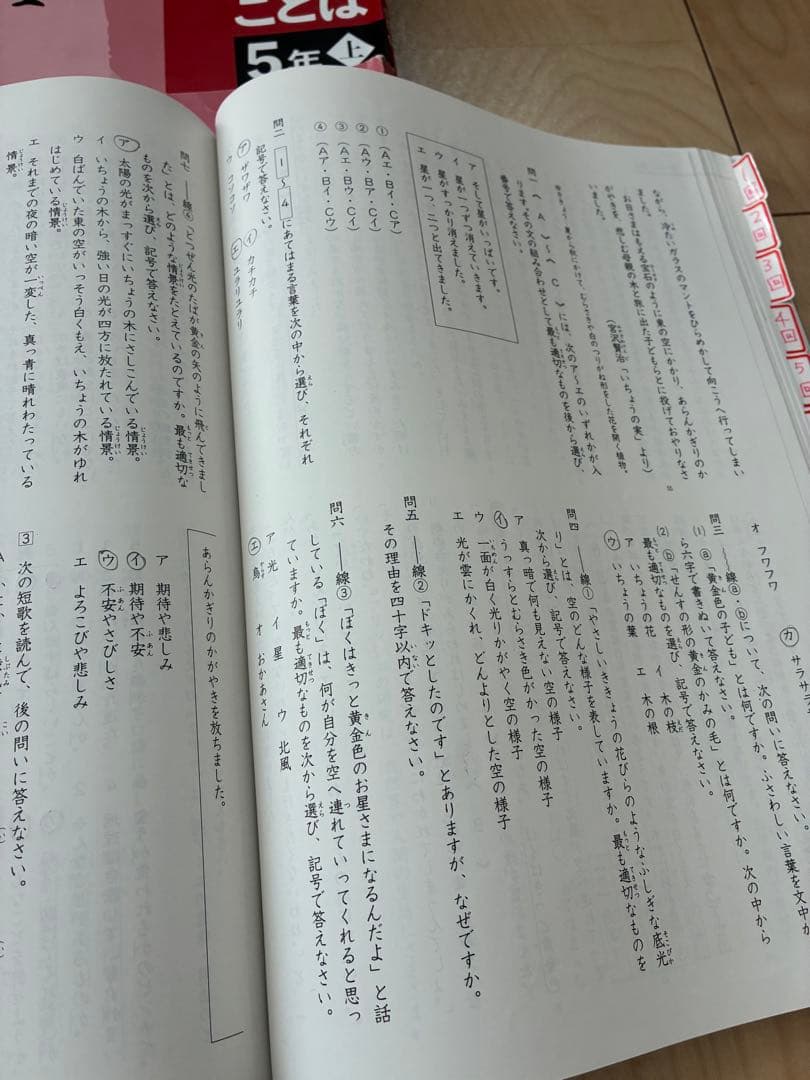 ことば
5年 上
1回
2回
3回
4回
5
ながら、冷たいガラスのマントをひらめかして向こうへ行ってしまい
ました。
お日さまはもえる宝石のように東の空にかかり、あらんかぎりのか
がやきを、悲しむ母親の木と旅に出た子どもらとに投げておやりなさ
いました。
(宮沢賢治「いちょうの実」より)
問一 (A)～(C)には、次のア～エのいずれかが入
ります。その文の組み合わせとして最も適切なものを後から選び、
番号で答えなさい。
ア そして星がいっぱいです。
イ 星が一つずつ消えていきます。
ウ 星がすっかり消えました。
エ 星が一つ、二つと出てきました。
① (Aエ・Bイ・Cア)
② (Aウ・Bア・Cイ)
③ (Aエ・Bウ・Cイ)
④ (Aア・Bイ・Cウ)
問二 1～4にあてはまる言葉を次の中から選び、それぞれ
記号で答えなさい。
ア ザワザワ イ カチカチ
ウ コソコソ エ ユラリユラリ
オ フワフワ カ サラサラ
問三 ――線ⓐ・ⓑについて、次の問いに答えなさい。
(1) ⓐ「黄金色の子ども」とは何ですか。ふさわしい言葉を文中か
ら六字で書きぬいて答えなさい。
(2) ⓑ「せんすの形の黄金のかみの毛」とは何ですか。次の中から
最も適切なものを選び、記号で答えなさい。
ア いちょうの花 イ 木の枝
ウ いちょうの葉 エ 木の根
問四 ――線①「やさしいききょうの花びらのようなふしぎな底光
り」とは、空のどんな様子を表していますか。最も適切なものを
次から選び、記号で答えなさい。
ア 真っ暗で何も見えない空の様子
イ うっすらとむらさき色がかった空の様子
ウ 一面が白く光りかがやく空の様子
エ 光が雲にかくれ、どんよりとした空の様子
問五 ――線②「ドキッとしたのです」とありますが、なぜですか。
その理由を四十字以内で答えなさい。
問六 ――線③「ぼくはきっと黄金色のお星さまになるんだよ」と話
している「ぼく」は、何が自分を空へ連れていってくれると思っ
ていますか。最も適切なものを次から選び、記号で答えなさい。
ア 光 イ 星 ウ 北風
エ 鳥 オ おかあさん
問七 ――線④「とつぜん光のたばが黄金の矢のように飛んできまし
た」とは、どのような情景をたとえているのですか。最も適切な
ものを次から選び、記号で答えなさい。
ア 太陽の光がまっすぐにいちょうの木にさしこんでいる情景。
イ いちょうの木から、強い日の光が四方に放たれている情景。
ウ 白ばんでいた東の空がいっそう白くもえ、いちょうの木がゆれ
はじめている情景。
エ それまでの夜の暗い空が一変した、真っ青に晴れわたっている
情景。
あらんかぎりのかがやきを放ちました。
ア 期待や悲しみ
イ 期待や不安
ウ 不安やさびしさ
エ よろこびや悲しみ
3 次の短歌を読んで、後の問いに答えなさい。